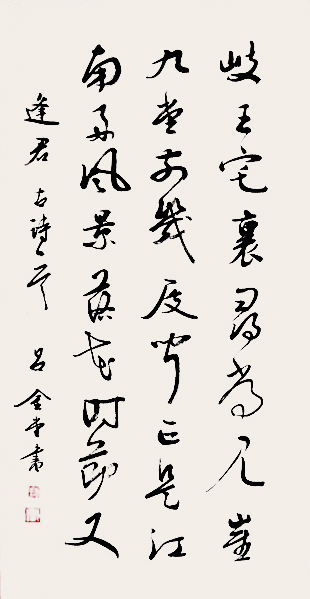 岐王宅裏尋常見崔
九堂前幾度聞正是江
南好風景落花時節又
逢君 古詩一首 吕金
書